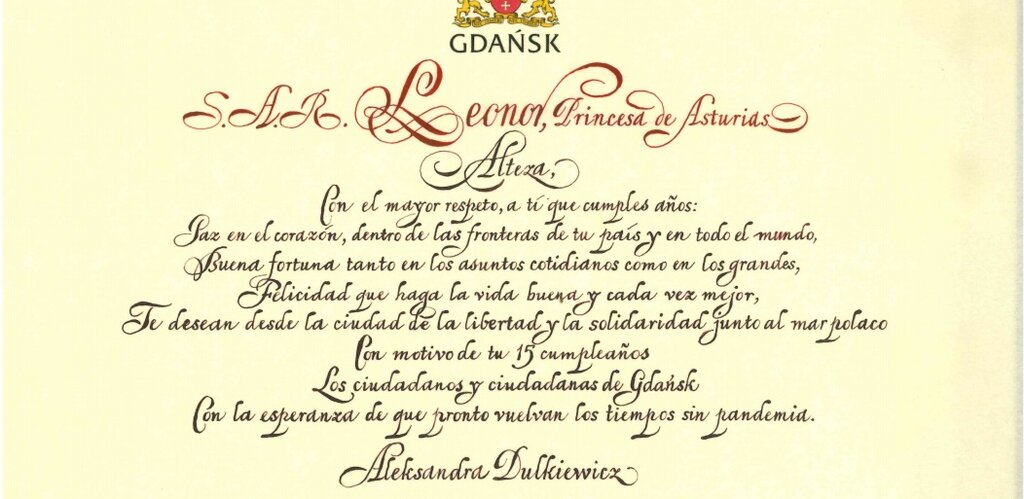 GDAŃSK
S.A.R. Leonor, Princesa de Asturias
Alteza,
Con el mayor respeto, a tí que cumples años:
Paz en el corazón, dentro de las fronteras de tu país y en todo el mundo,
Buena fortuna tanto en los asuntos cotidianos como en los grandes,
Felicidad que haga la vida buena y cada vez mejor,
Te desean desde la ciudad de la libertad y la solidaridad junto al mar polaco
Con motivo de tu 15 cumpleaños
Los ciudadanos y ciudadanas de Gdańsk
Con la esperanza de que pronto vuelvan los tiempos sin pandemia.
Aleksandra Dulkiewicz